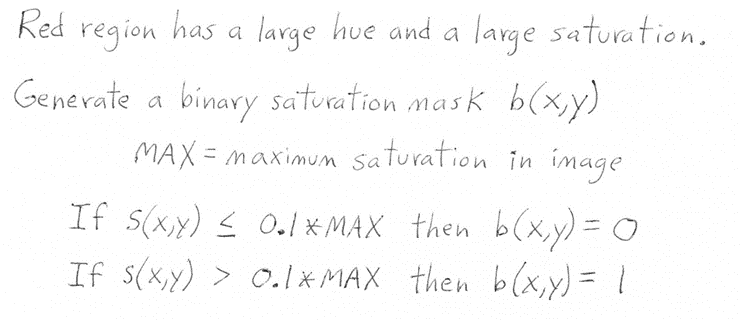 Red region has a large hue and a large saturation.
Generate a binary saturation mask b(x,y)
MAX = maximum saturation in image
If s(x,y) ≤ 0.1*MAX then b(x,y) = 0
If s(x,y) > 0.1*MAX then b(x,y) = 1